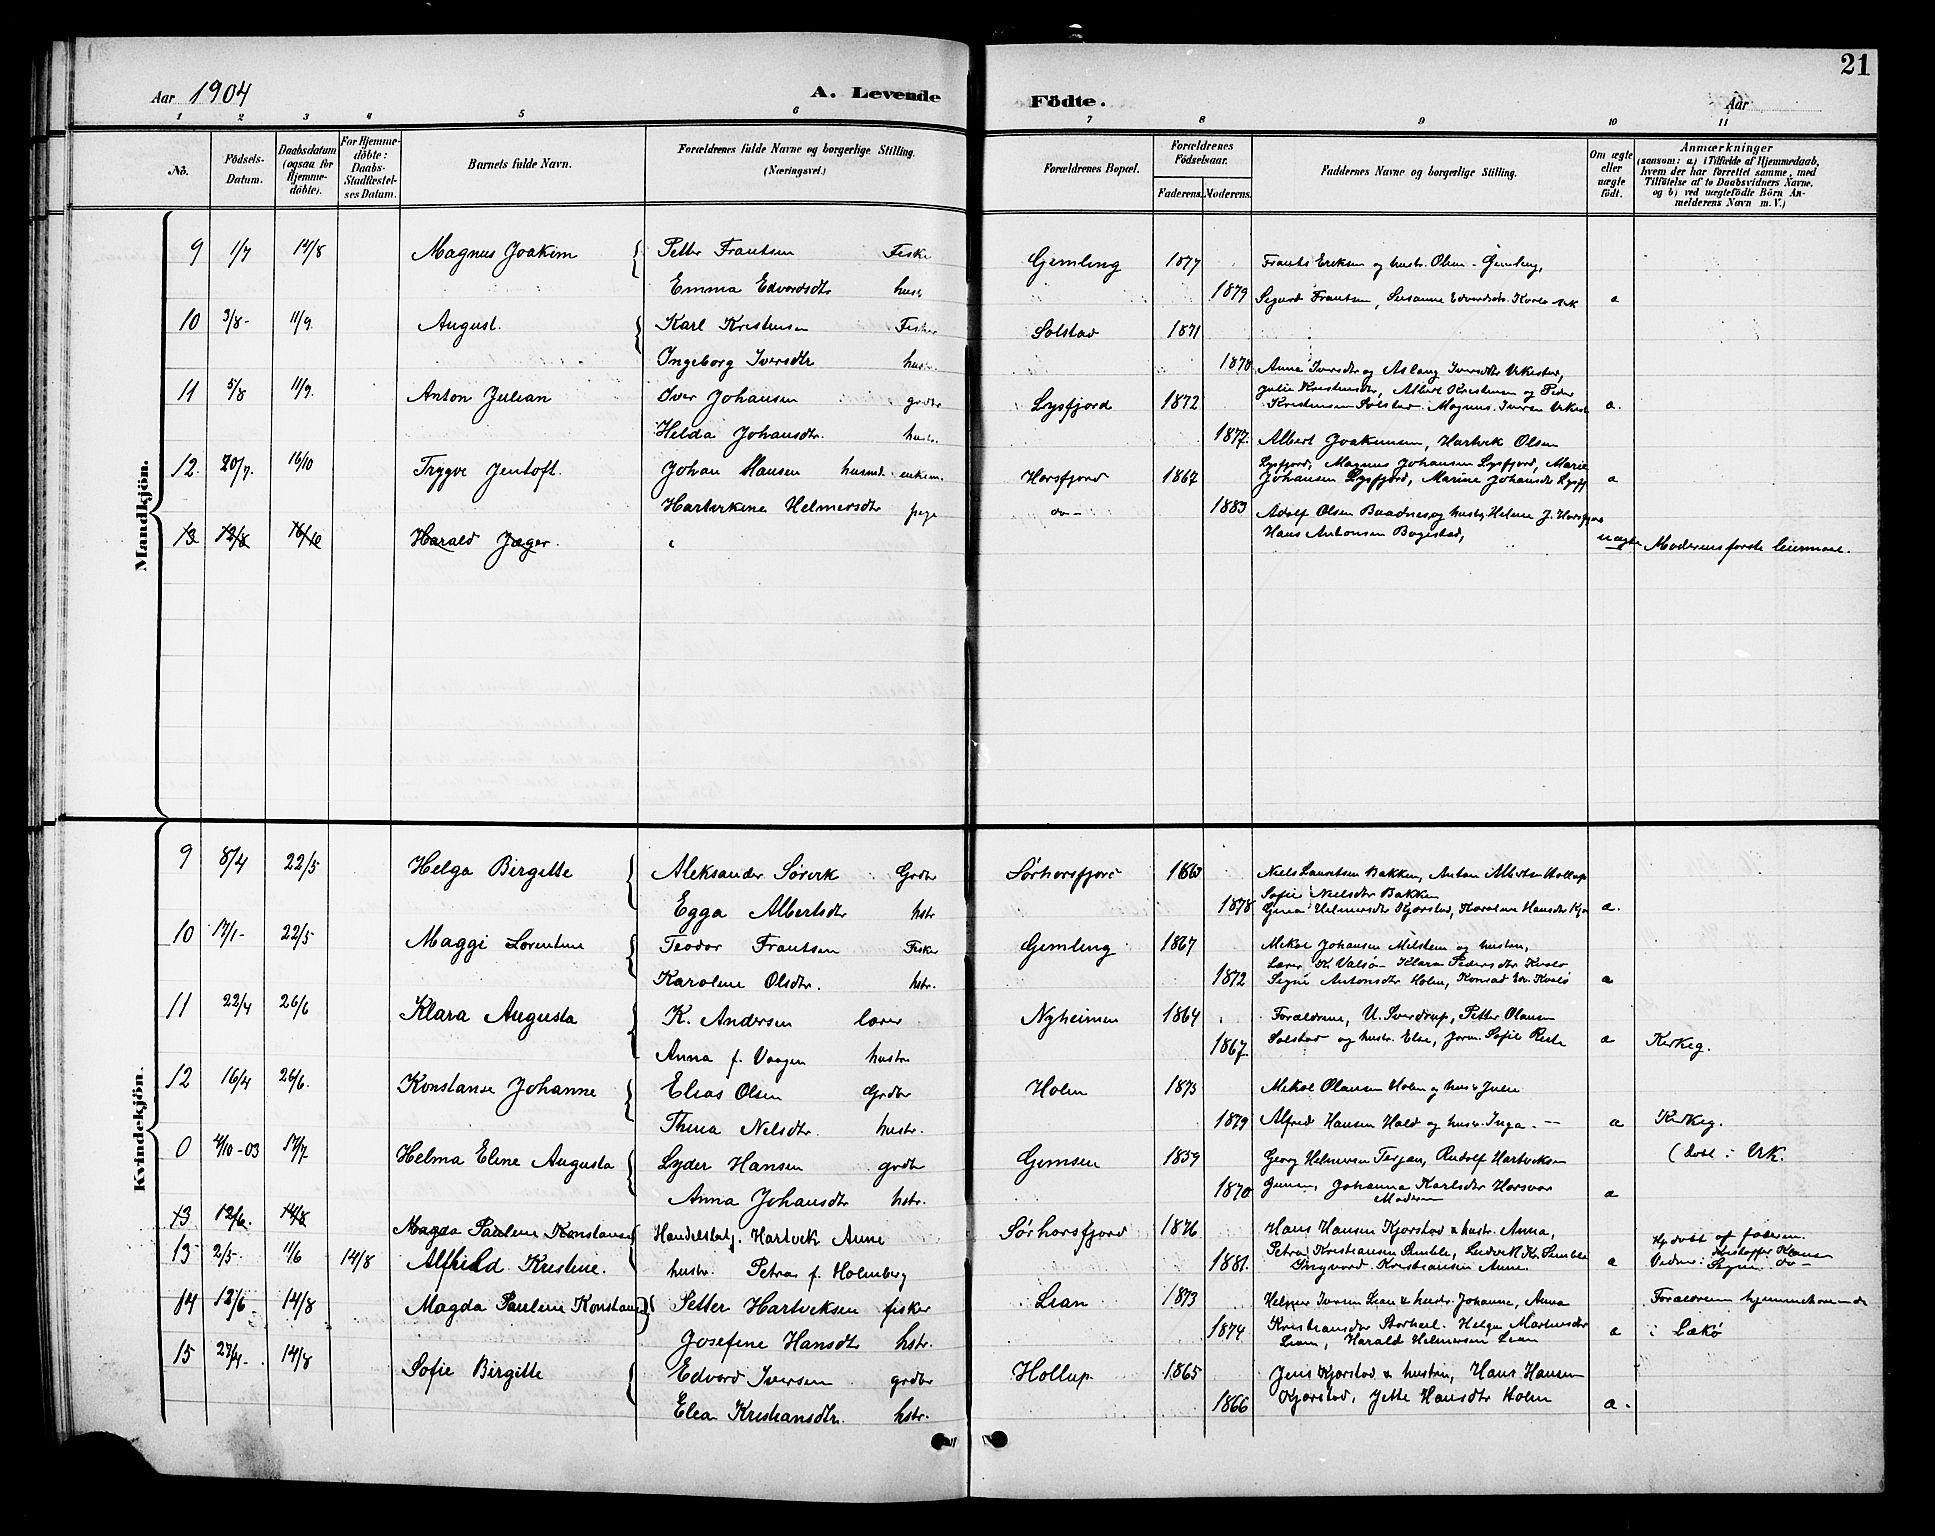 Aar 1904
A. Levende
Födte.
Aar
21
1 2 3 4 5 6 7 8 9 10 11
No.
Födsels-Datum.
Daabsdatum (ogsaa for Hjemmedöbte).
For Hjemmedöbte: Daabs-Stadfæstelses Datum.
Barnets fulde Navn.
Forældrenes fulde Navne og borgerlige Stilling. (Næringsvei.)
Forældrenes Bopæl.
Forældrenes Födselsaar.
Faderens. Moderens.
Faddernes Navne og borgerlige Stilling.
Om ægte eller uægte födt.
Anmærkninger
(saasom: a) i Tilfælde af Hjemmedaab,
hvem der har forrettet samme, med
Tilföielse af to Daabsvidners Navne.
og b) ved uægtefödte Börn An-
melderens Navn m. V.)
Mandkjön.
9 1/7 14/8 Magnus Joakim Petter Frantsen Fisker Gemling 1877 Frants Eriksen og hustr. Olsen - Gemling,
Emma Edvardsdtr hustr 1879 Sigurd Frantsen, Susanne Edvardsdtr. a
10 3/8- 11/9. August. Karl Kristensen Fisker Solstad 1871
Ingeborg Iversdtr hustr. 1878 Anna Iversdtr og Aslaug Iversdtr
11 5/8 11/9. Anton Julian Iver Johansen grdbr Lysfjord 1872 Julie Kristensdtr, Albert Kristensen og Peder
Kristensen Solstad. Magnus Iversen a.
Helda Johansdtr. hustr. 1877. Albert Joakimsen, Hartvik Olsen
12. 20/7. 16/10 Trygve Jentoft. Johan Hansen husmd. enkem. Horsfjord 1867 Lysfjord, Magnus Johansen Lysfjord, Marie
Johansen Lysfjord, Marine Johansdtr Lysfj. a
Hartvikene Helmersdtr pige do- 1883 Adolf Olsen Baadnes og hustr. Helene J. Horsfjord
13 12/8 16/10 Harald Jæger. Hans Antonsen Bogestad, uægte Moderens første leiermaal.
Kvindekjön.
9 8/4 22/5 Helga Birgitte Aleksander Sørvik Grdbr Sørhorsfjord 1863 Niels Lauritsen Bakken, Anton Albertsen Hollup
Sofie Nielsdtr Bakken
Egga Albertsdtr hstr 1878 Gina Helmersdtr Kjørstad, Karoline Hansdtr a.
10 17/1- 22/5 Maggi Lorentine Teodor Frantsen Fisker Gemling 1867 Mikal Johansen Milstein og hustru,
Lærer K. Valsø - Klara Pedersdtr Kvalø
Karoline Olsdtr. hstr. 1872 Signe Antonsdtr Holm, Konrad Edv. Kvalø a
11 22/4 26/6 Klara Augusta K. Andersen lærer Nyheimen 1864 Forældrene, U. Sverdrup, Petter Olausen
Anna f. Vaagen hustr 1867. Solstad og hustr. Else, Jorm. Sofie a Kirkeg.
12 16/4 26/6. Konstanse Johanne Elias Olsen Grdbr Holm 1873 Mikal Olausen Holm og hustr Julie
Thina Nelsdtr. hustr. 1879 Alfred Hansen Hald og hustr. Inga. - a Kirkeg.
0 4/10-03 17/7 Helma Eline Augusta Lyder Hansen grdbr Gimsen 1859 Georg Helmersen Terjan, Rudolf Hartviksen
(døbt i Vik.
Anna Johansdtr hstr. 1870 Gimsen, Johanna Karlsdtr Horsvær
Moderen a
13 12/6. 14/8 Magda Pauline Konstanse Handelsbetj. Hartvik Aune Sørhorsfjord 1876 Hans Hansen Kjørstad & hustr. Anna,
13 2/5- 11/6 14/8 Alfhild Kristine. hustr. Petra f. Holmberg 1881. Petra Kristiansen Semble, Ludvik Kr. Semble
Ingvard Kristiansen Aune. a
Hj.døbt af faderen.
Vidner: Kristoffer
Signe do-
14 12/6- 14/8 Magda Pauline Konstanse Petter Hartviksen fisker Lian 1873 Helmer Iversen Lian & hustr. Johanne, Anna
Josefine Hansdtr hstr. 1874 Kristiansdtr Storheil. Helga Martinsdtr
Lian, Harald Helmersen Lian a
Forældrene hjemmehørende
i Lekø
15 27/4- 14/8 Sofie Birgitte Edvard Iversen grdbr Hollup 1865 Jens Kjørstad & hustru, Hans Hansen
Elea Kristiansdtr. hstr. 1866 Kjørstad, Jette Hansdtr Holm a.